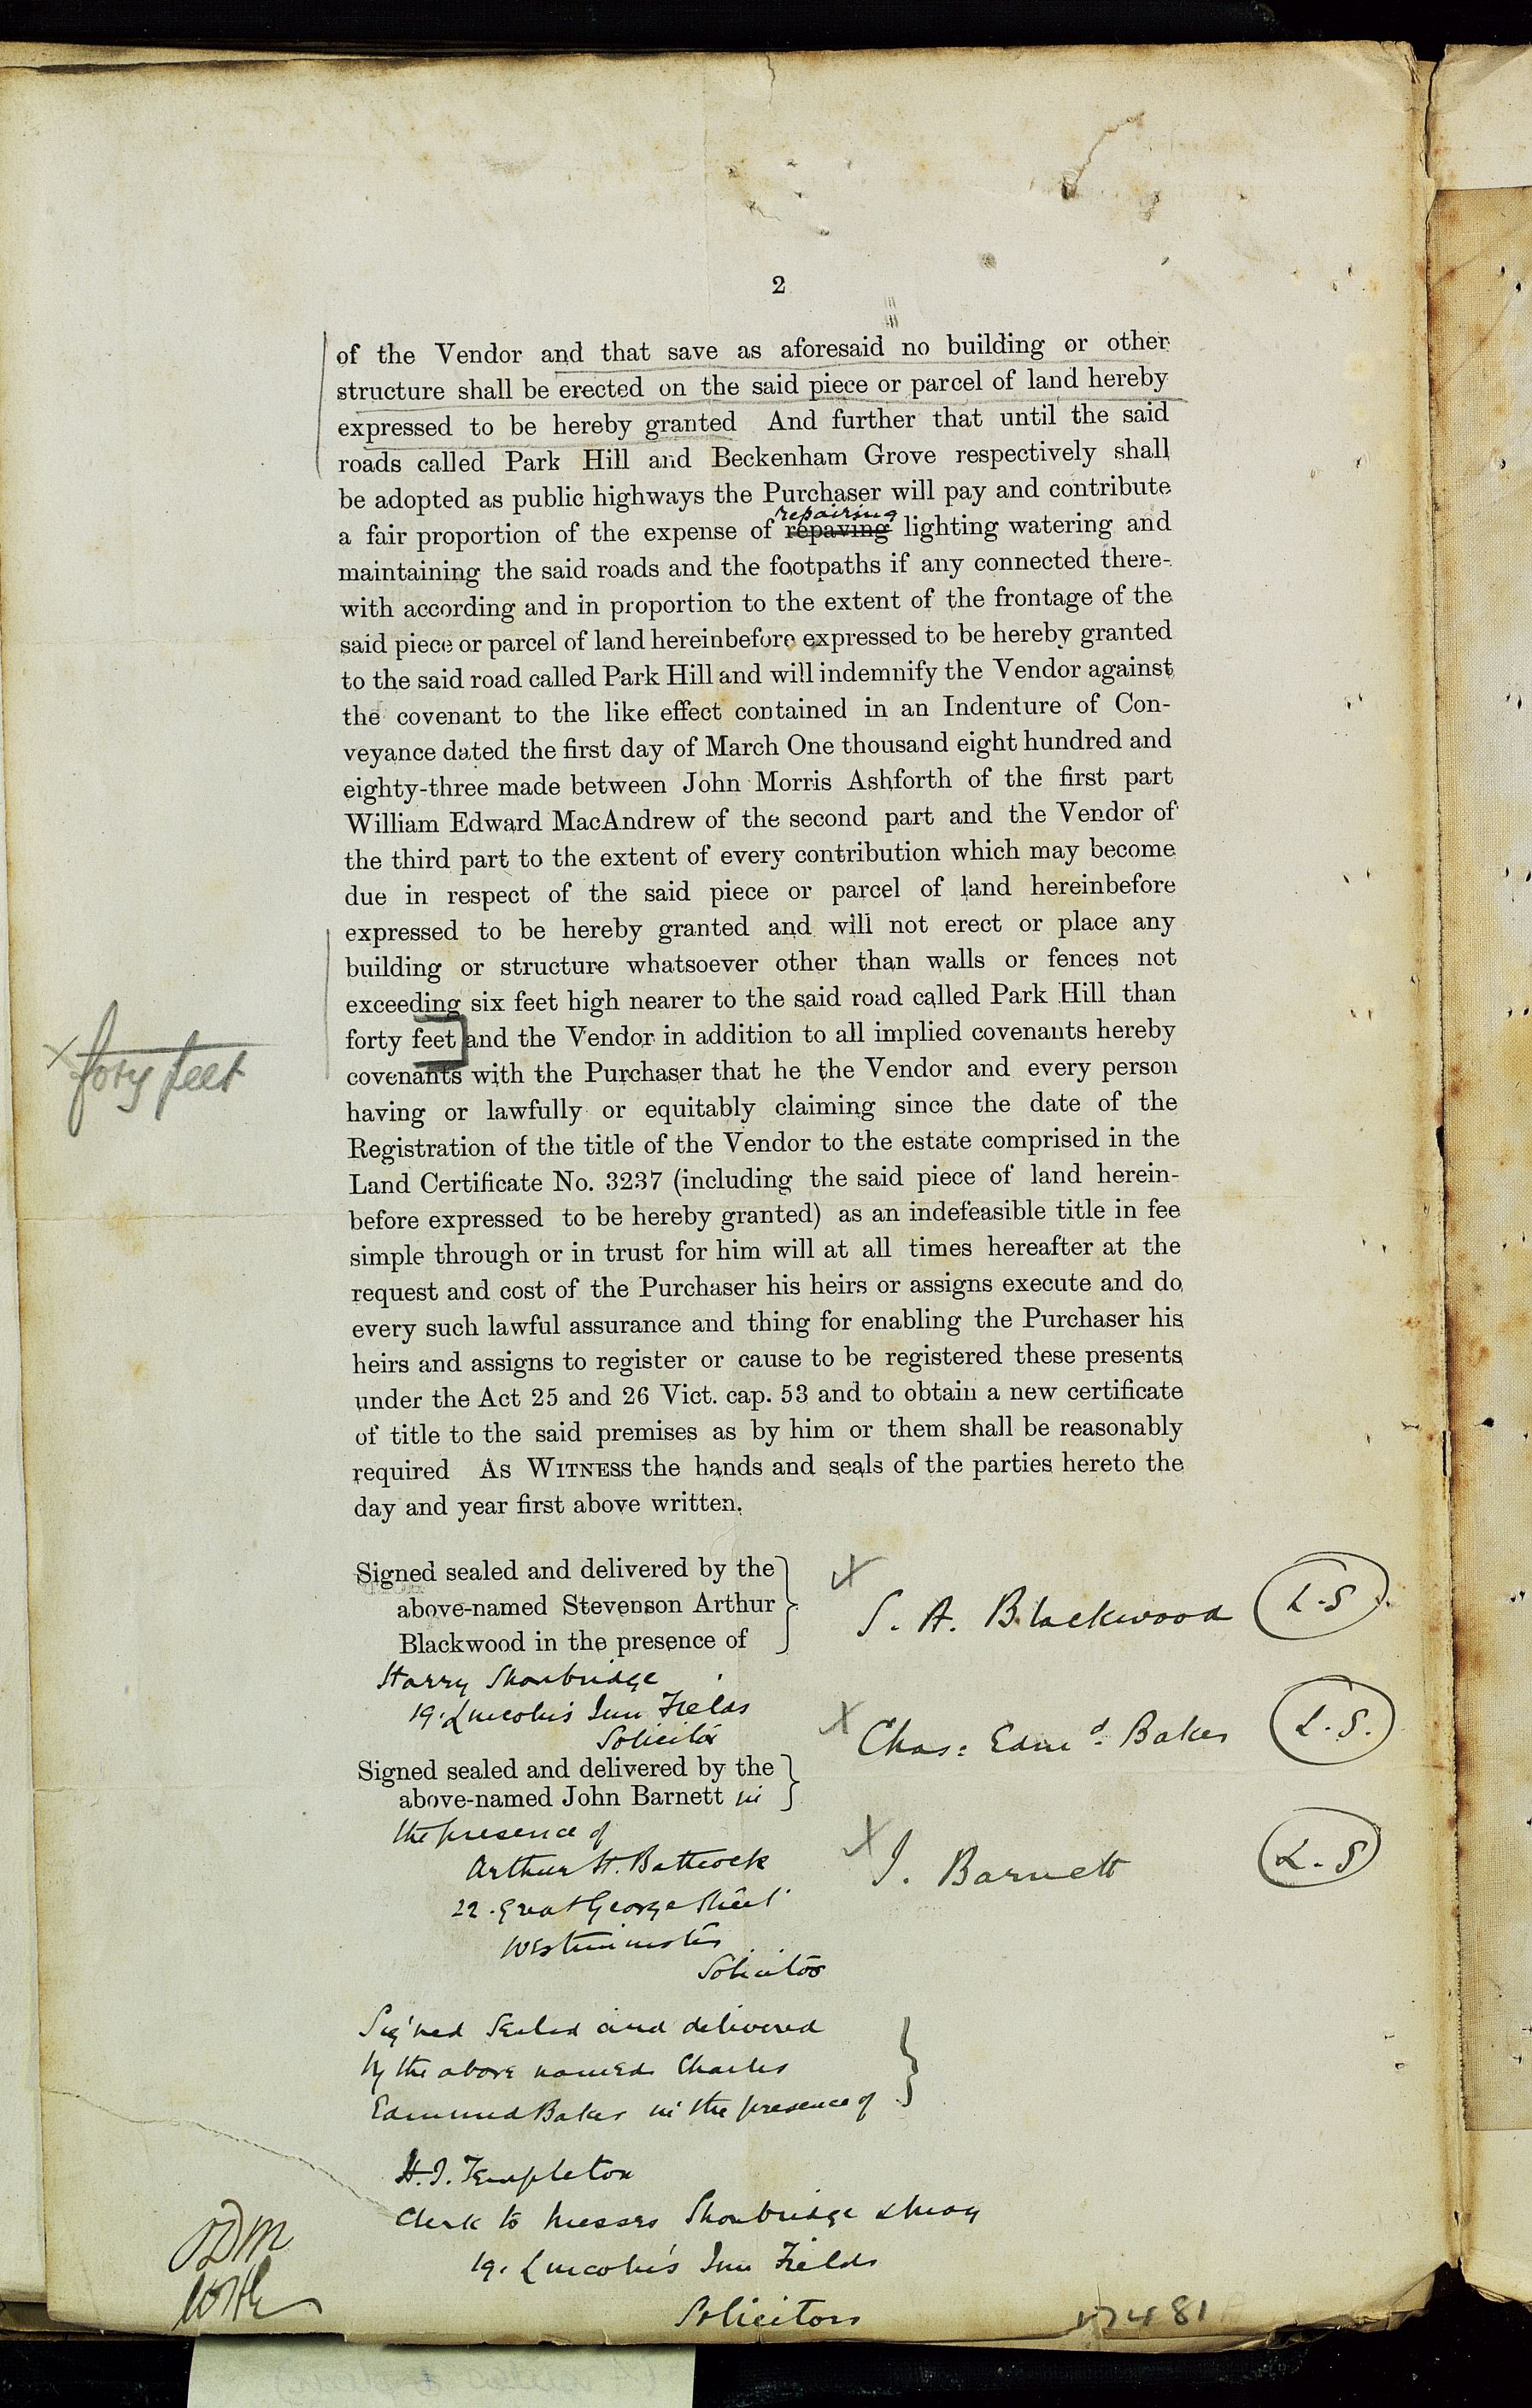 2
of the Vendor and that save as aforesaid no building or other
structure shall be erected on the said piece or parcel of land hereby
expressed to be hereby granted And further that until the said
roads called Park Hill and Beckenham Grove respectively shall
be adopted as public highways the Purchaser will pay and contribute
repairing
a fair proportion of the expense of repaving lighting watering and
maintaining the said roads and the footpaths if any connected there-
with according and in proportion to the extent of the frontage of the
said piece or parcel of land hereinbefore expressed to be hereby granted
to the said road called Park Hill and will indemnify the Vendor against
the covenant to the like effect contained in an Indenture of Con-
veyance dated the first day of March One thousand eight hundred and
eighty-three made between John Morris Ashforth of the first part
William Edward MacAndrew of the second part and the Vendor of
the third part to the extent of every contribution which may become
due in respect of the said piece or parcel of land hereinbefore
expressed to be hereby granted and will not erect or place any
building or structure whatsoever other than walls or fences not
exceeding six feet high nearer to the said road called Park Hill than
forty feet and the Vendor in addition to all implied covenants hereby
x forty feet
covenants with the Purchaser that he the Vendor and every person
having or lawfully or equitably claiming since the date of the
Registration of the title of the Vendor to the estate comprised in the
Land Certificate No. 3237 (including the said piece of land herein-
before expressed to be hereby granted) as an indefeasible title in fee
simple through or in trust for him will at all times hereafter at the
request and cost of the Purchaser his heirs or assigns execute and do
every such lawful assurance and thing for enabling the Purchaser his
heirs and assigns to register or cause to be registered these presents
under the Act 25 and 26 Vict. cap. 53 and to obtain a new certificate
of title to the said premises as by him or them shall be reasonably
required As WITNESS the hands and seals of the parties hereto the
day and year first above written.
Signed sealed and delivered by the
above-named Stevenson Arthur
Blackwood in the presence of
x S. A. Blackwood L.S.
Harry Shoubridge
19. Lincoln's Inn Fields
Solicitor
x Chas: Edmd. Baker L.S.
Signed sealed and delivered by the
above-named John Barnett in
the presence of
x J. Barnett L.S
Arthur H. Battcock
22. Great George Street
Westminster
Solicitor
Signed Sealed and delivered
by the above named Charles
Edmund Baker in the presence of
H. J. Templeton
Clerk to Messrs Shoubridge & May
19. Lincoln's Inn Fields
Solicitors
17481